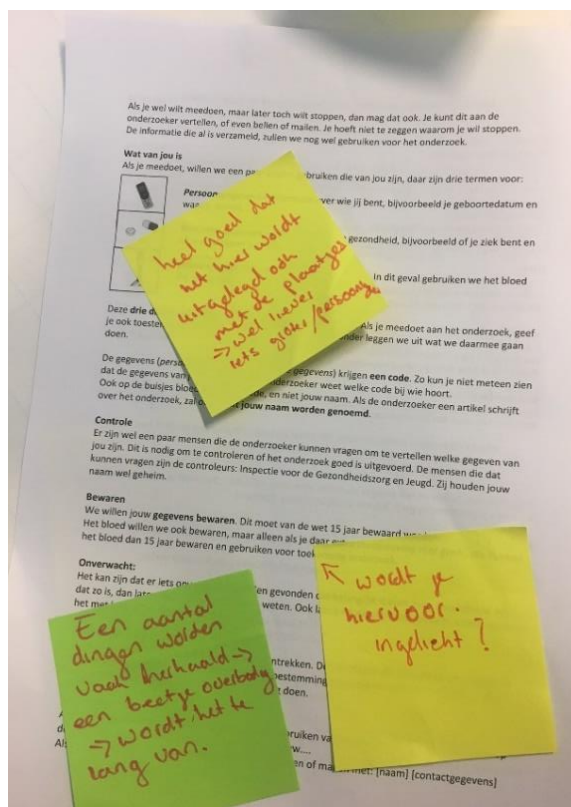 Als je wel wilt meedoen, maar later toch wilt stoppen, dan mag dat ook. Je kunt dit aan de
onderzoeker vertellen, of even bellen of mailen. Je hoeft niet te zeggen waarom je wil stoppen.
De informatie die al is verzameld, zullen we nog wel gebruiken voor het onderzoek.
Wat van jou is
Als je meedoet, willen we een bruiken die van jou zijn, daar zijn drie termen voor:
Persoon
over wie jij bent, bijvoorbeeld je geboortedatum en
gezondheid, bijvoorbeeld of je ziek bent en
In dit geval gebruiken we het bloed
heel goed dat
het hier wordt
uitgelegd ook
met de plaatjes
→ wel liever
iets groter/
Deze drie Als je meedoet aan het onderzoek, geef
je ook toestem leggen we uit wat we daarmee gaan
doen.
De gegevens ( gegevens) krijgen een code. Zo kun je niet meteen zien
dat de gegevens van onderzoeker weet welke code bij wie hoort.
Ook op de buisjes bloed en niet jouw naam. Als de onderzoeker een artikel schrijft
over het onderzoek, zal jouw naam worden genoemd.
Controle
Er zijn wel een paar mensen die de onderzoeker kunnen vragen om te vertellen welke gegeven van
jou zijn. Dit is nodig om te controleren of het onderzoek goed is uitgevoerd. De mensen die dat
kunnen vragen zijn de controleurs: Inspectie voor de Gezondheidszorg en Jeugd. Zij houden jouw
naam wel geheim.
Bewaren
We willen jouw gegevens bewaren. Dit moet van de wet 15 jaar bewaard
Het bloed willen we ook bewaren, maar alleen als je daar
het bloed dan 15 jaar bewaren en gebruiken voor
Onverwacht:
Het kan zijn dat er iets gevonden
dat zo is, dan weten. Ook
het
Een aantal
dingen worden
vaak herhaald →
een beetje overbodig
→ wordt het te
lang van.
↖ wordt je
hiervoor.
ingelicht?
ntrekken.
estemming
doen.
bruiken
en of met: [naam] [contactgegevens]